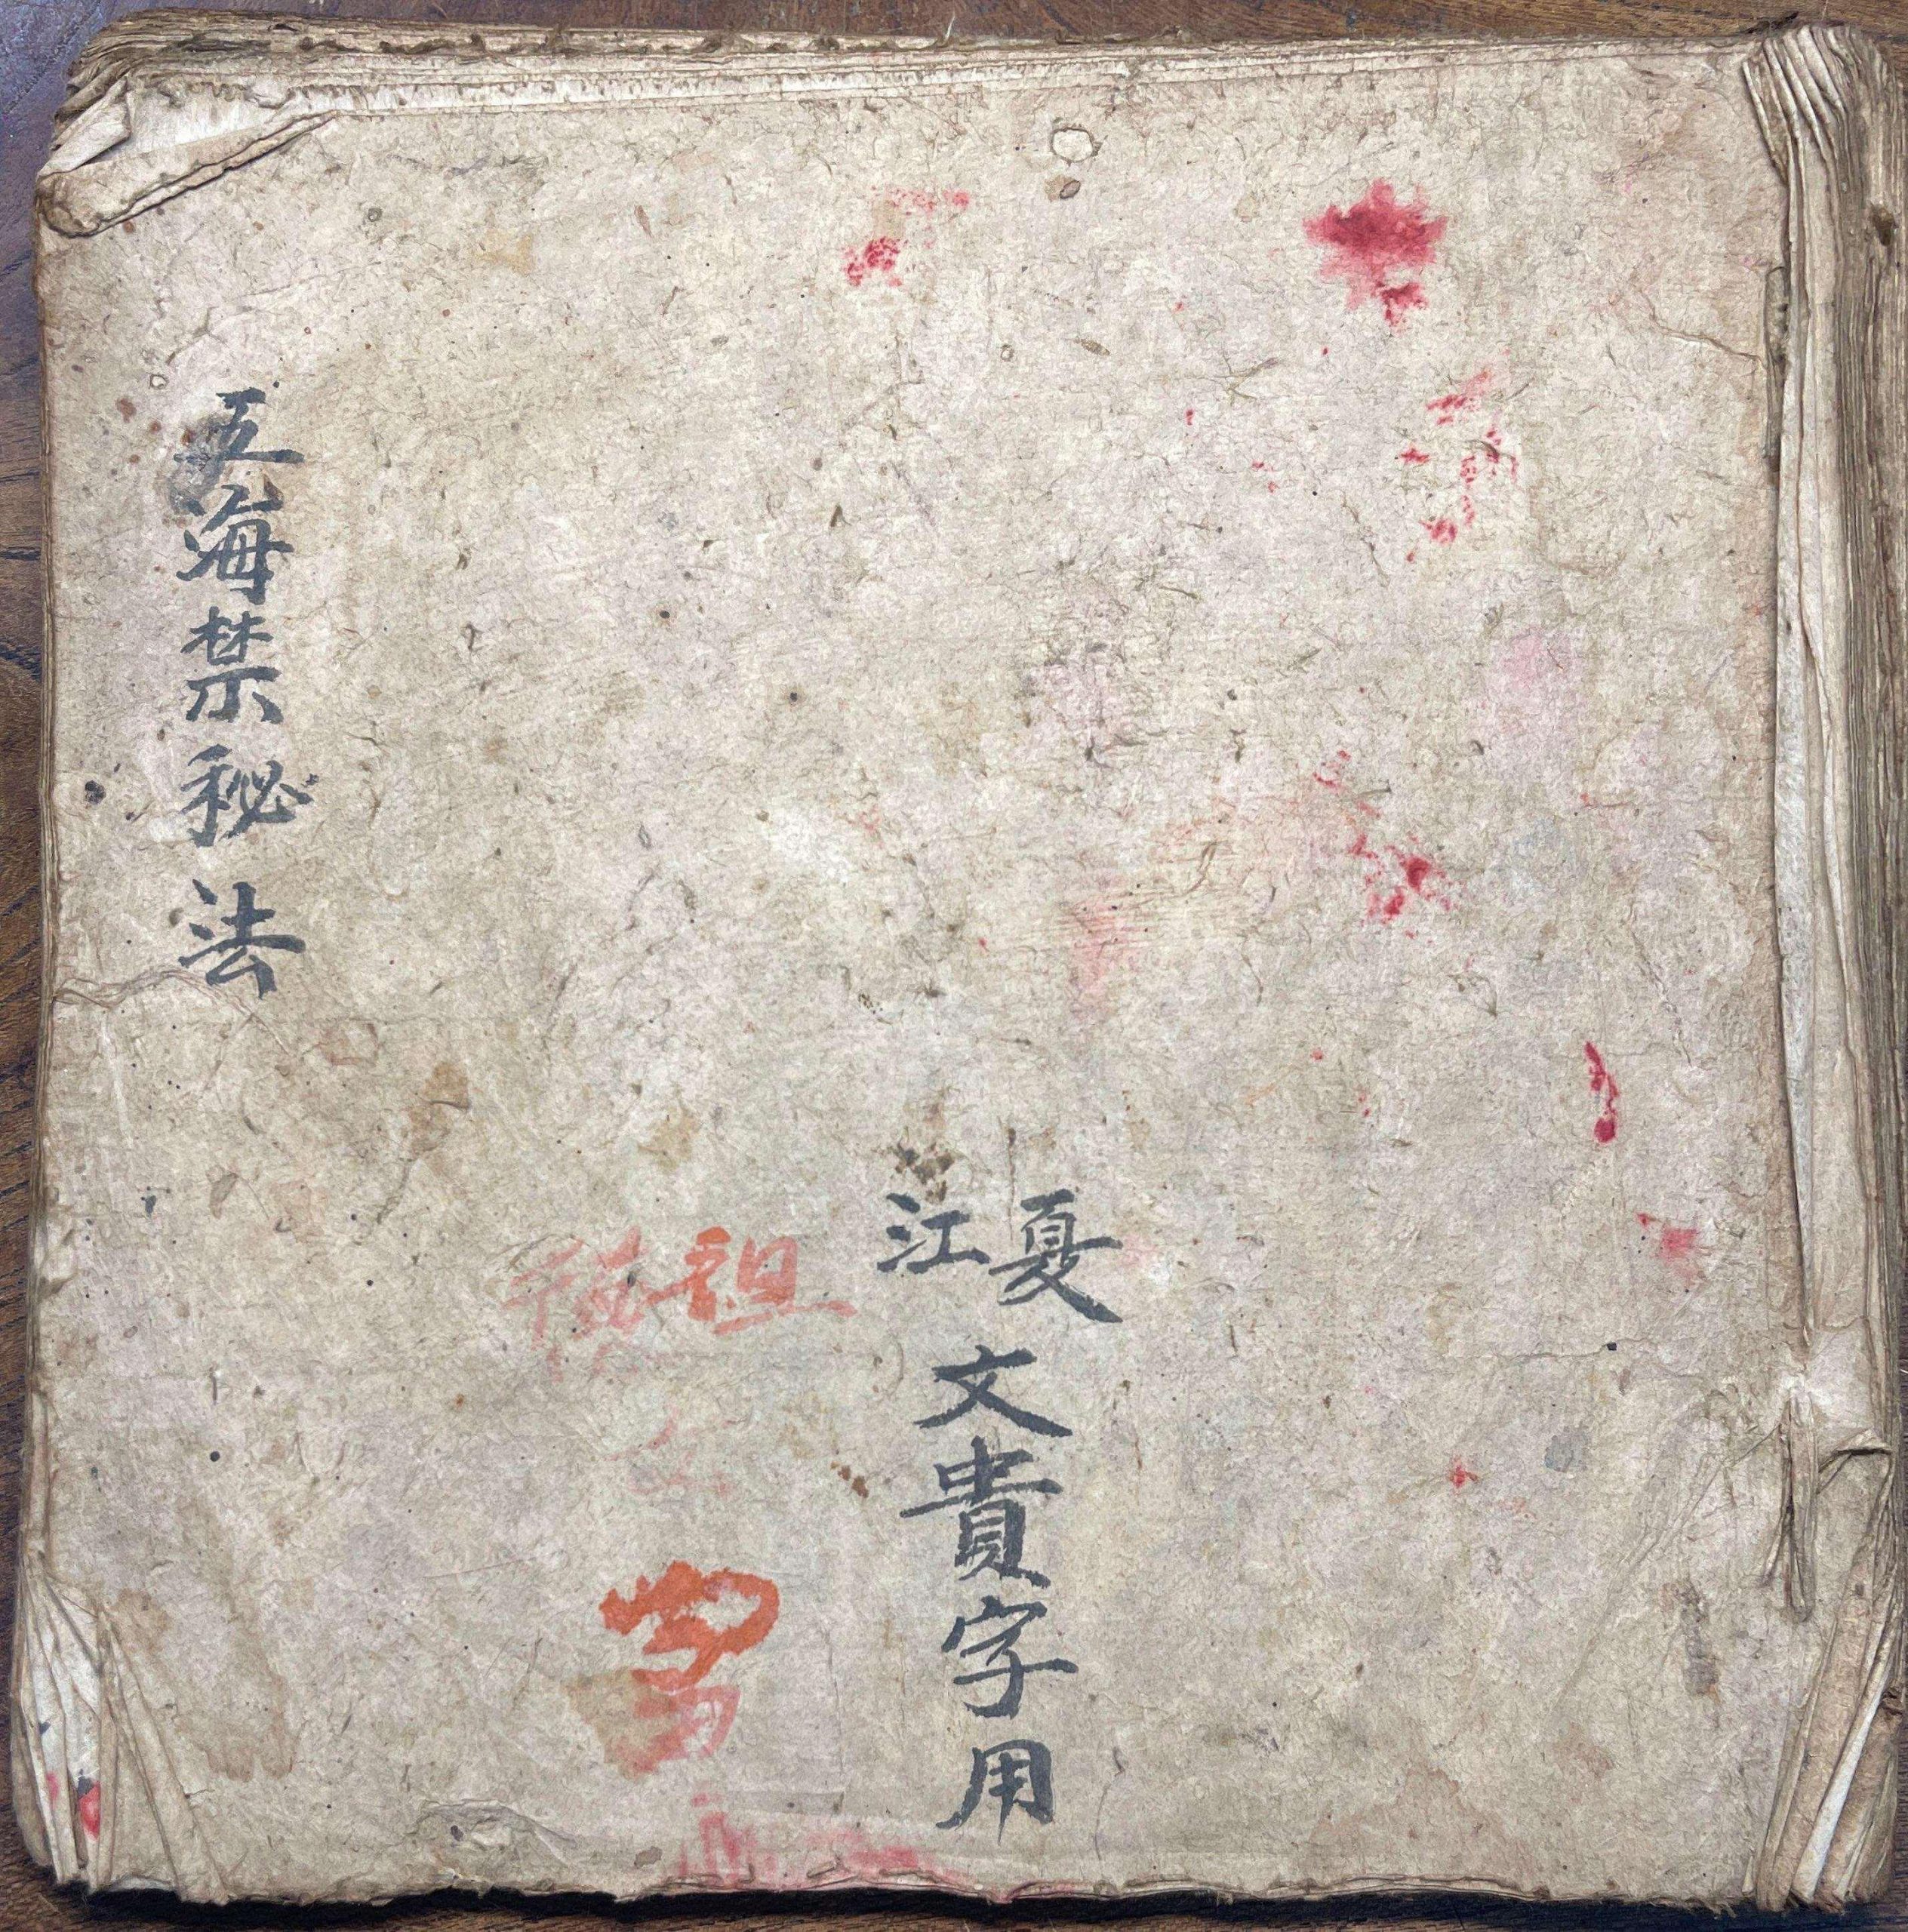 江夏
文貴字用
祖德
五海禁秘法